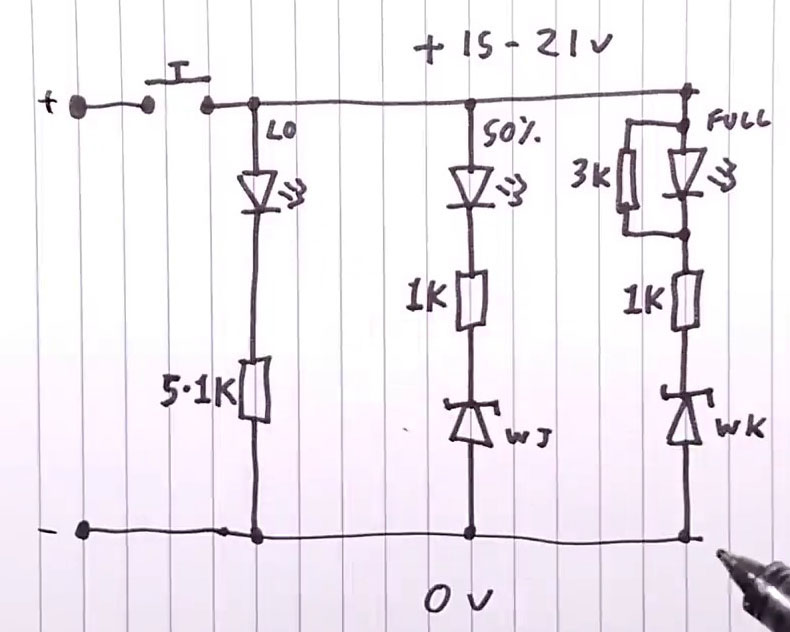 + 15 - 21V
+
LO
50%
FULL
3K
1K
1K
5.1K
WJ
WK
-
0V